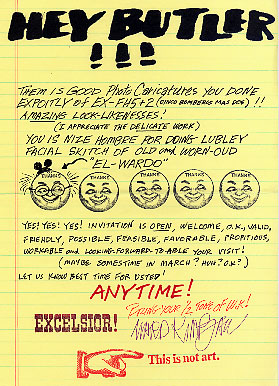 HEY BUTLER
!!!
THEM IS GOOD PHOTO CARICATURES YOU DONE
EXPCITLY OF EX-FH5+2 (DINCO BOMBERG MAS DOE) !!
AMAZING LOOK-LIKENESSES!
(I APPRECIATE THE DELICATE WORK)
YOU IS NIZE HOMBEE FOR DOING LUBLEY
FACIAL SKITCH OF OLD AND WORN-OUD
"EL-WARDO"
THANKS THANKS THANKS THANKS THANKS
YES! YES! YES! INVITATION IS OPEN, WELCOME, O.K., VALID,
FRIENDLY, POSSIBLE, FEASIBLE, FAVORABLE, PROPITIOUS,
WORKABLE AND LOOKING-FORWARD-TO-ABLE YOUR VISIT!
(MAYBE SOMESTIME IN MARCH? HUH? O.K?)
LET US KNOW BEST TIME FOR USTEd!
ANYTIME!
BRING YOUR 1/2 TONE OF WAX!
EXCELSIOR!
WARD KIMBALL
This is not art.